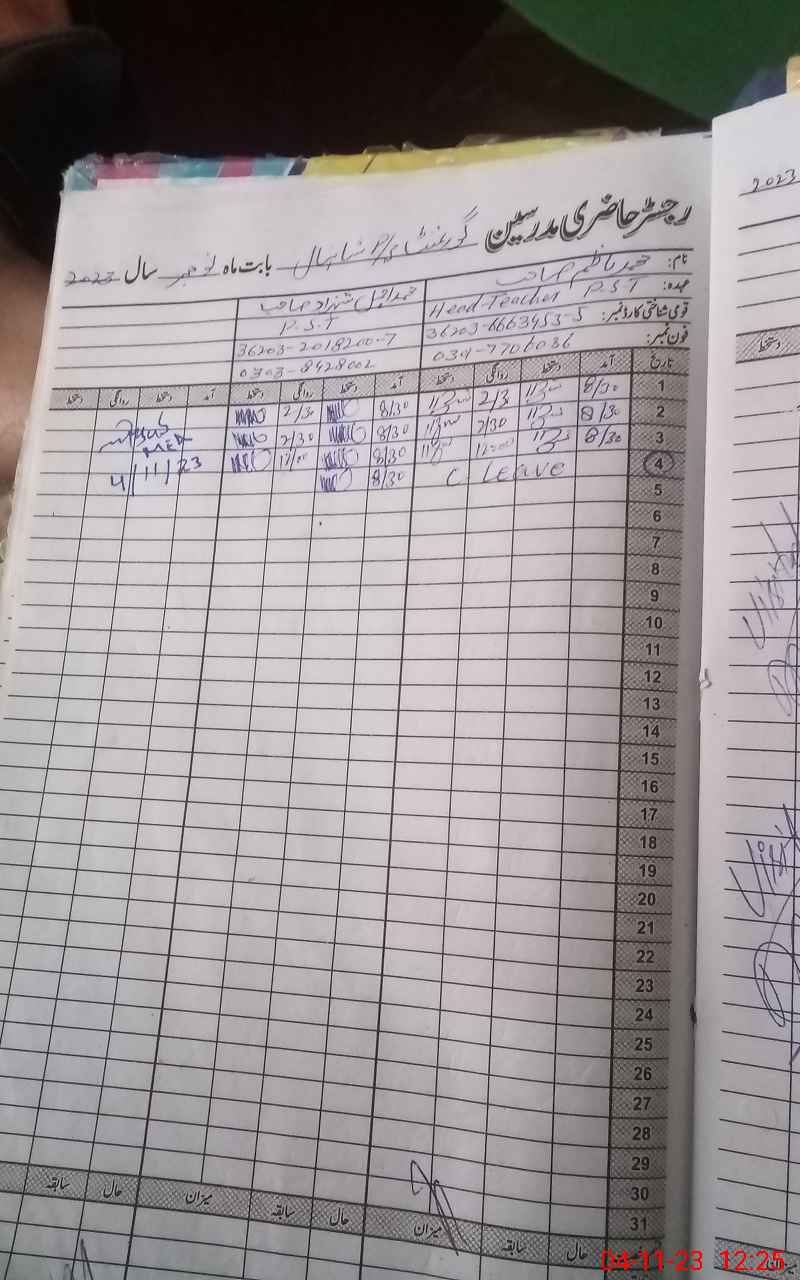 رجسٹر حاضری مدرسین گورنمنٹ P/S بابت ماہ نومبر سال 2023
2023
نام: محمد ناظم صاحب
عہدہ: Head-Teacher P.S.T P.S.T
قومی شناختی کارڈ نمبر: 36203-6663453-5 36203-2018200-7
فون نمبر: 0303-8428002
تاریخ آمد دستخط روانگی دستخط آمد دستخط روانگی دستخط آمد دستخط روانگی دستخط
دستخط
1 8/30 2/3 8/30 2/30
2 8/30 2/30 8/30 2/30
3 8/30 12/00 8/30 12/00
MEA
4 C Leave 8/30
4/11/23
5
6
7
8
9
10
11
12
13
14
15
16
17
18
19
20
21
22
23
24
25
26
27
28
29
30
31
حال سابقہ میزان حال سابقہ میزان حال سابقہ
میزان
04-11-23 12:25